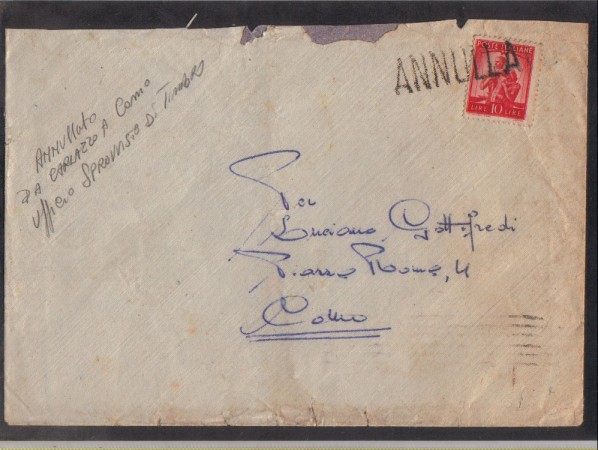 ANNULLATO
DA CARLAZZO A Como
Ufficio SPROVVISTO DI TIMBRO
ANNULLA
POSTE ITALIANE
LIRE 10 LIRE
Per
Luciano Gottifredi
Piazza Roma, 4
Como